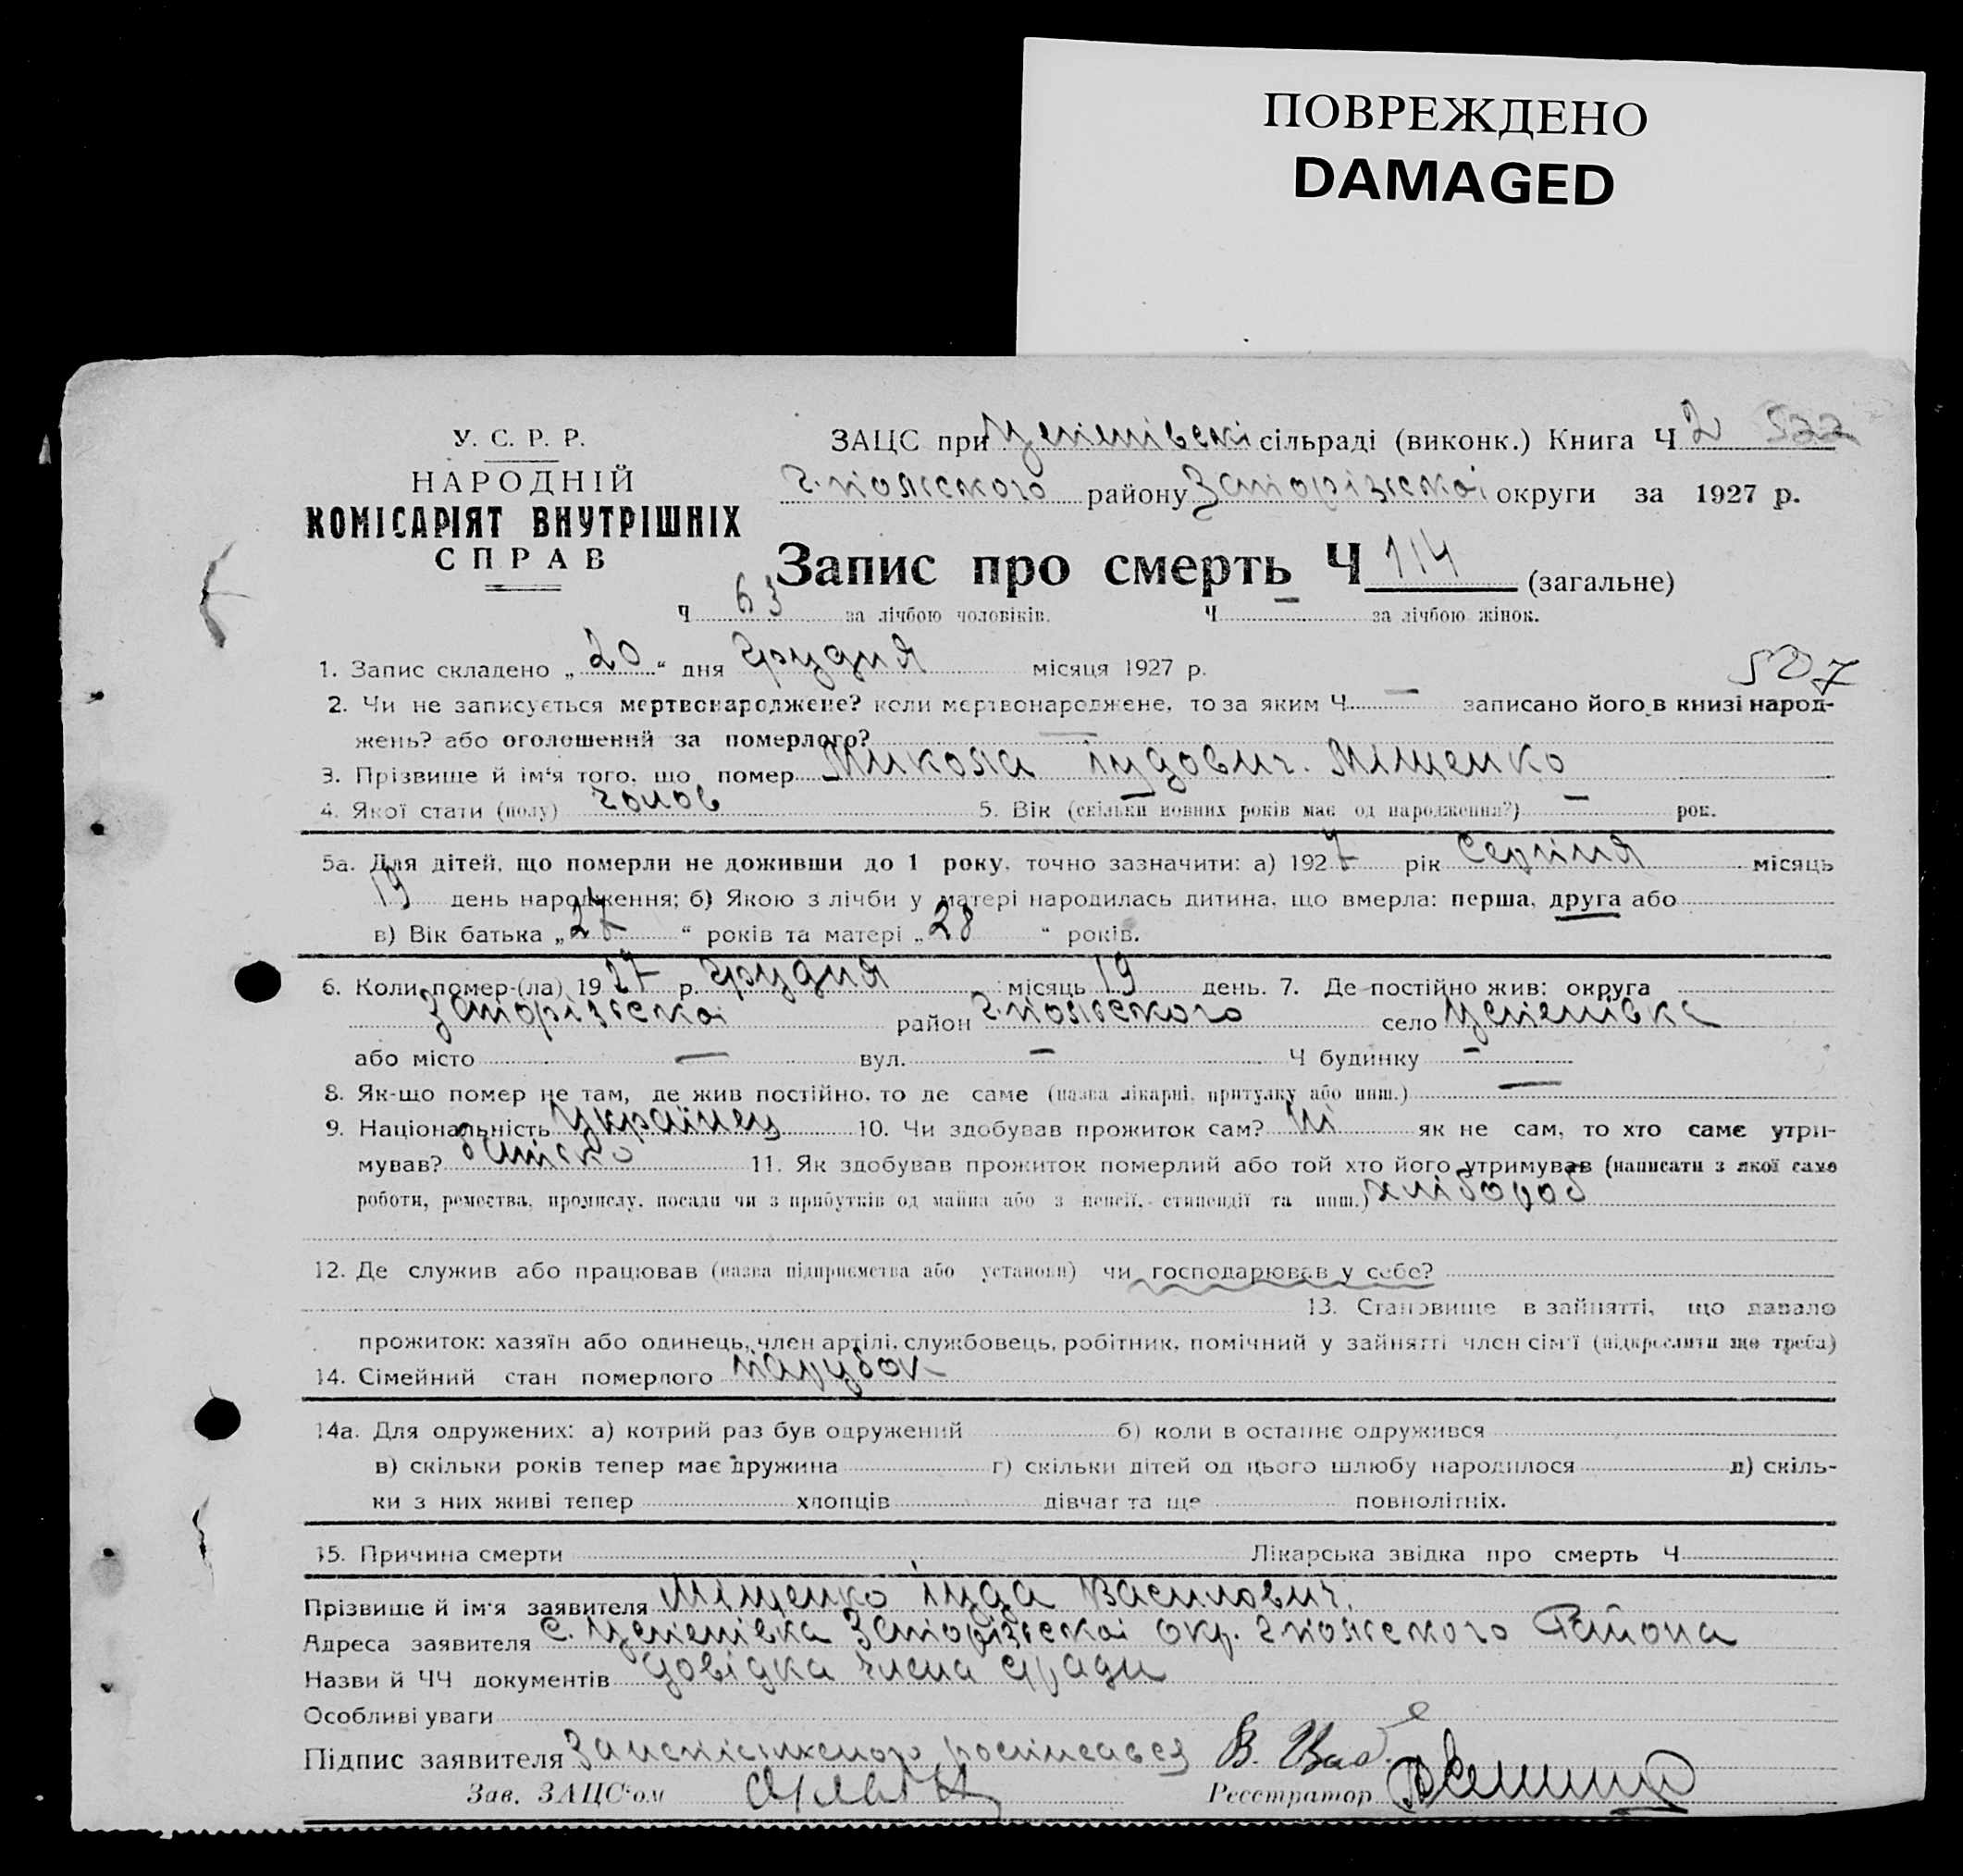 ПОВРЕЖДЕНО
DAMAGED
У. С. Р. Р.
НАРОДНІЙ
КОМІСАРІЯТ ВНУТРІШНІХ
СПРАВ
ЗАЦС при Успенівскі сільраді (виконк.) Книга Ч 2 522
г.пояського району Запоріжскоі округи за 1927 р.
Запис про смерть Ч 114 (загальне)
Ч 63 за лічбою чоловіків. Ч — за лічбою жінок.
1. Запис складено „ 20 “ дня Грудня місяця 1927 р.
507
2. Чи не записується мертвонароджене? коли мертвонароджене, то за яким Ч — записано його в книзі народ-
жень? або оголошений за померлого? —
3. Прізвище й ім‘я того, що помер Микола Іудович. Міщенко
4. Якої стати (полу) чолов 5. Вік (скільки повних років має од народження?) — рок.
5а. Для дітей, що померли не доживши до 1 року, точно зазначити: а) 1927 рік Серпня місяць
19 день народження; б) Якою з лічби у матері народилась дитина, що вмерла: перша, друга або
в) Вік батька „ 27 “ років та матері „ 28 “ років.
6. Коли помер-(ла) 19 27 р. Грудня місяць 19 день. 7. Де постійно жив: округа
Запоріжскоі район г.пояського село Успенівка
або місто — вул. — Ч будинку —
8. Як-що помер не там, де жив постійно, то де саме (назва лікарні, притулку або инш.) —
9. Національність Українец 10. Чи здобував прожиток сам? Ні як не сам, то хто саме утри-
мував? батько 11. Як здобував прожиток померлий або той хто його утримував (написати з якої саме
роботи, ремества, промислу, посади чи з прибутків од майна або з пенсії, стипендії та инш.) хлібороб
12. Де служив або працював (назва підприємства або установи) чи господарював у себе?
13. Становище в зайнятті, що давало
прожиток: хазяїн або одинець, член артілі, службовець, робітник, помічний у зайнятті член сім‘ї (підкреслити що треба)
14. Сімейний стан померлого парубок
14а. Для одружених: а) котрий раз був одружений б) коли в останнє одружився
в) скільки років тепер має дружина г) скільки дітей од цього шлюбу народилося д) скіль-
ки з них живі тепер хлопців дівчат та ще повнолітніх.
15. Причина смерти Лікарська звідка про смерть Ч
Прізвище й ім‘я заявителя Міщенко Іуда Василович.
Адреса заявителя с. Успенівка Запоріжскоі окр. г пояського Района
Назви й ЧЧ документів довідка члена с/ради
Особливі уваги
Підпис заявителя росписавсь В.
Зав. ЗАЦС‘ом Реєстратор